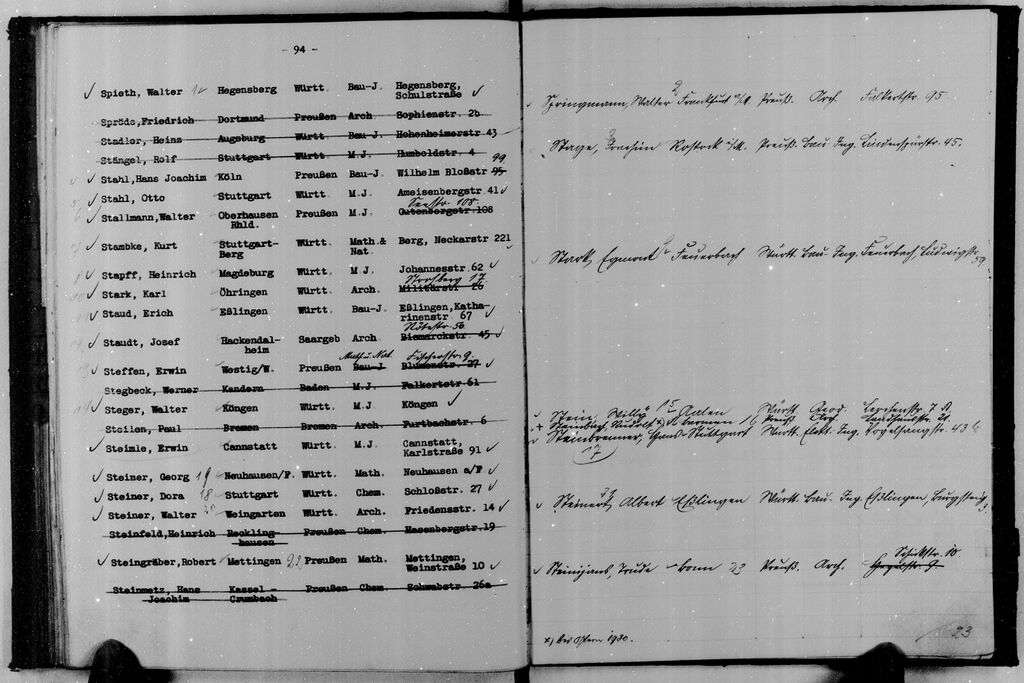 - 94 -
Spieth, Walter Hegensberg Württ. Bau-J. Hegensberg,
Schulstraße
Spröde,Friedrich Dortmund Preußen Arch Sophienstr. 2b
Stadler, Heinz Augsburg Württ Bau-J. Hohenheimerstr 43
Stängel, Rolf Stuttgart Württ M.J. Humboldstr. 4
99
Stahl,Hans Joachim Köln Preußen Bau-J. Wilhelm Bloßstr 95
Stahl, Otto Stuttgart Württ M.J. Ameisenbergstr 41
Seestr. 108.
Stallmann,Walter Oberhausen Preußen M.J. Gutenbergstr 108
Rhld.
Stambke, Kurt Stuttgart- Württ. Math.& Berg, Neckarstr 221
Berg Nat.
Stapff, Heinrich Magdeburg Württ. M.J. Johannesstr 62
17
Stark, Karl Öhringen Württ. Arch. Militärstr 26
Staud, Erich Eßlingen Württ. Bau-J Eßlingen,Katha-
rinenstr 67
56
Staudt, Josef Hackendal- Saargeb Arch Bismarckstr. 45
heim
Math u. Nat. Fischerstr. 9.
Steffen, Erwin Westig/W. Preußen Bau-J Blumenstr. 27
Stegbeck, Werner Kandern Baden M.J. Falkertstr 61
Steger, Walter Köngen Württ. M.J. Köngen
Steilen, Paul Bremen Bremen Arch Furtbachstr. 6
Steimle, Erwin Cannstatt Württ M.J. Cannstatt,
Karlstraße 91
Steiner, Georg 19 Neuhausen/F. Württ. Math. Neuhausen a/F
Steiner, Dora 18 Stuttgart Württ. Chem. Schloßstr. 27
Steiner, Walter 20 Weingarten Württ. Arch. Friedensstr. 14
Steinfeld,Heinrich Reckling- Preußen Chem. Hasenbergstr.19
hausen
Steingräber,Robert Mettingen Preußen Math. Mettingen,
Weinstraße 10
Steinmetz, Hans Kassel- Preußen Chem Schwabstr. 26a
Joachim Crumbach
Springmann, Walter Frankfurt a/M. Preuß. Arch. Falkertstr. 95
Stage, Joachim Rostock i/M. Preuß. Bau Ing. Lindenspürstr. 45.
Stark Egmont Feuerbach Württ. Bau Ing. Feuerbach, Ludwigstr.
59
Stein, Willy 15 Aalen Württ. Lerchenstr. 7
Steinbach, Rudolf x) Barmen 16 Preuß. Arch. Landhausstr. 21
Steinbrenner, Hans Stuttgart Württ. Elekt. Ing. Vogelsangstr. 43
17
Steinert Albert Eßlingen Württ. Bau. Ing. Eßlingen, Burgsteig
3.
Schickstr. 10.
Steinjans, Trude Bonn 23 Preuß. Arch.
x) bis Ostern 1930.
23